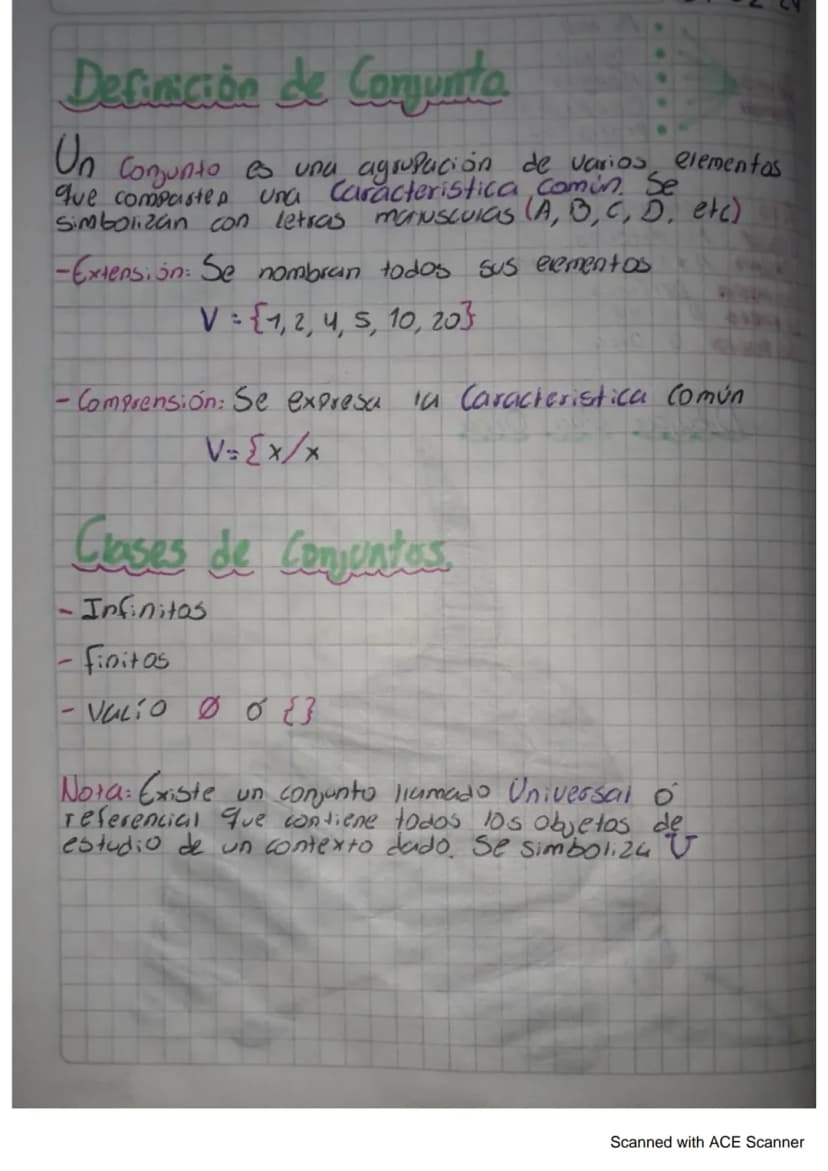 Definición de Conjunto
Un Conjunto es una agrupación de varios elementos
que comparten una Caracteristica común. Se
simbolizan con letras mayusculas (A, B, C, D, etc)
-Extensión: Se nombran todos sus elementos
V = {1, 2, 4, 5, 10, 20}
- Comprensión: Se expresa la Caracteristica Común
V= {x/x
Clases de Conjuntos
- Infinitos
- finitos
- Vacío ∅ ó {}
Nota: Existe un conjunto llamado Universal ó
referencial que contiene todos los objetos de
estudio de un contexto dado. Se simboliza U
Scanned with ACE Scanner